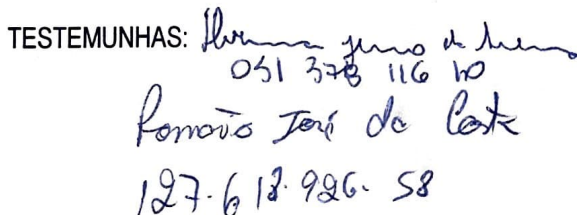 TESTEMUNHAS:
051 378 116 10
Romovo José da Costa
127.618.926-58